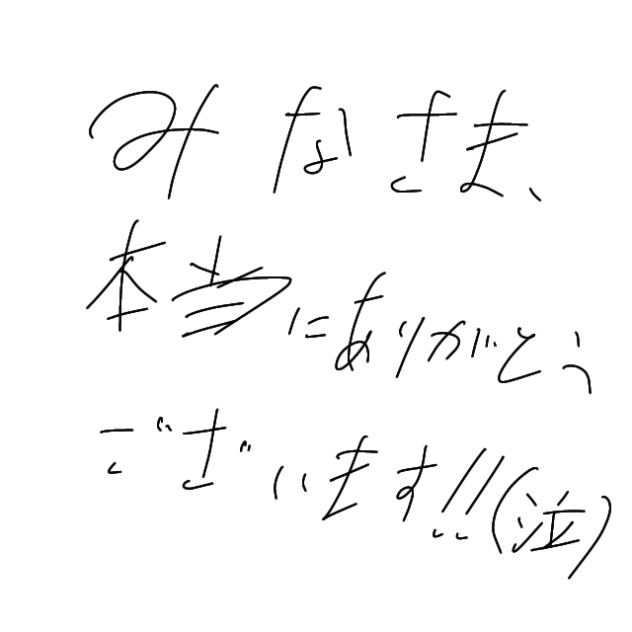 みなさま、
本当にありがとう
ございます!!(泣)